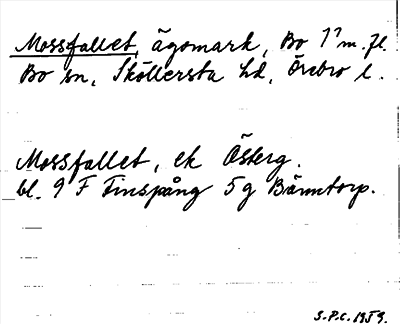 Mossfallet, ägomark, Bo 1⁷ m. fl.
Bo sn, Sköllersta hd, Örebro l.
Mossfallet, ek Österg.
bl. 9 F Finspång 5g Bärmtorp.
S.P.C. 1959.